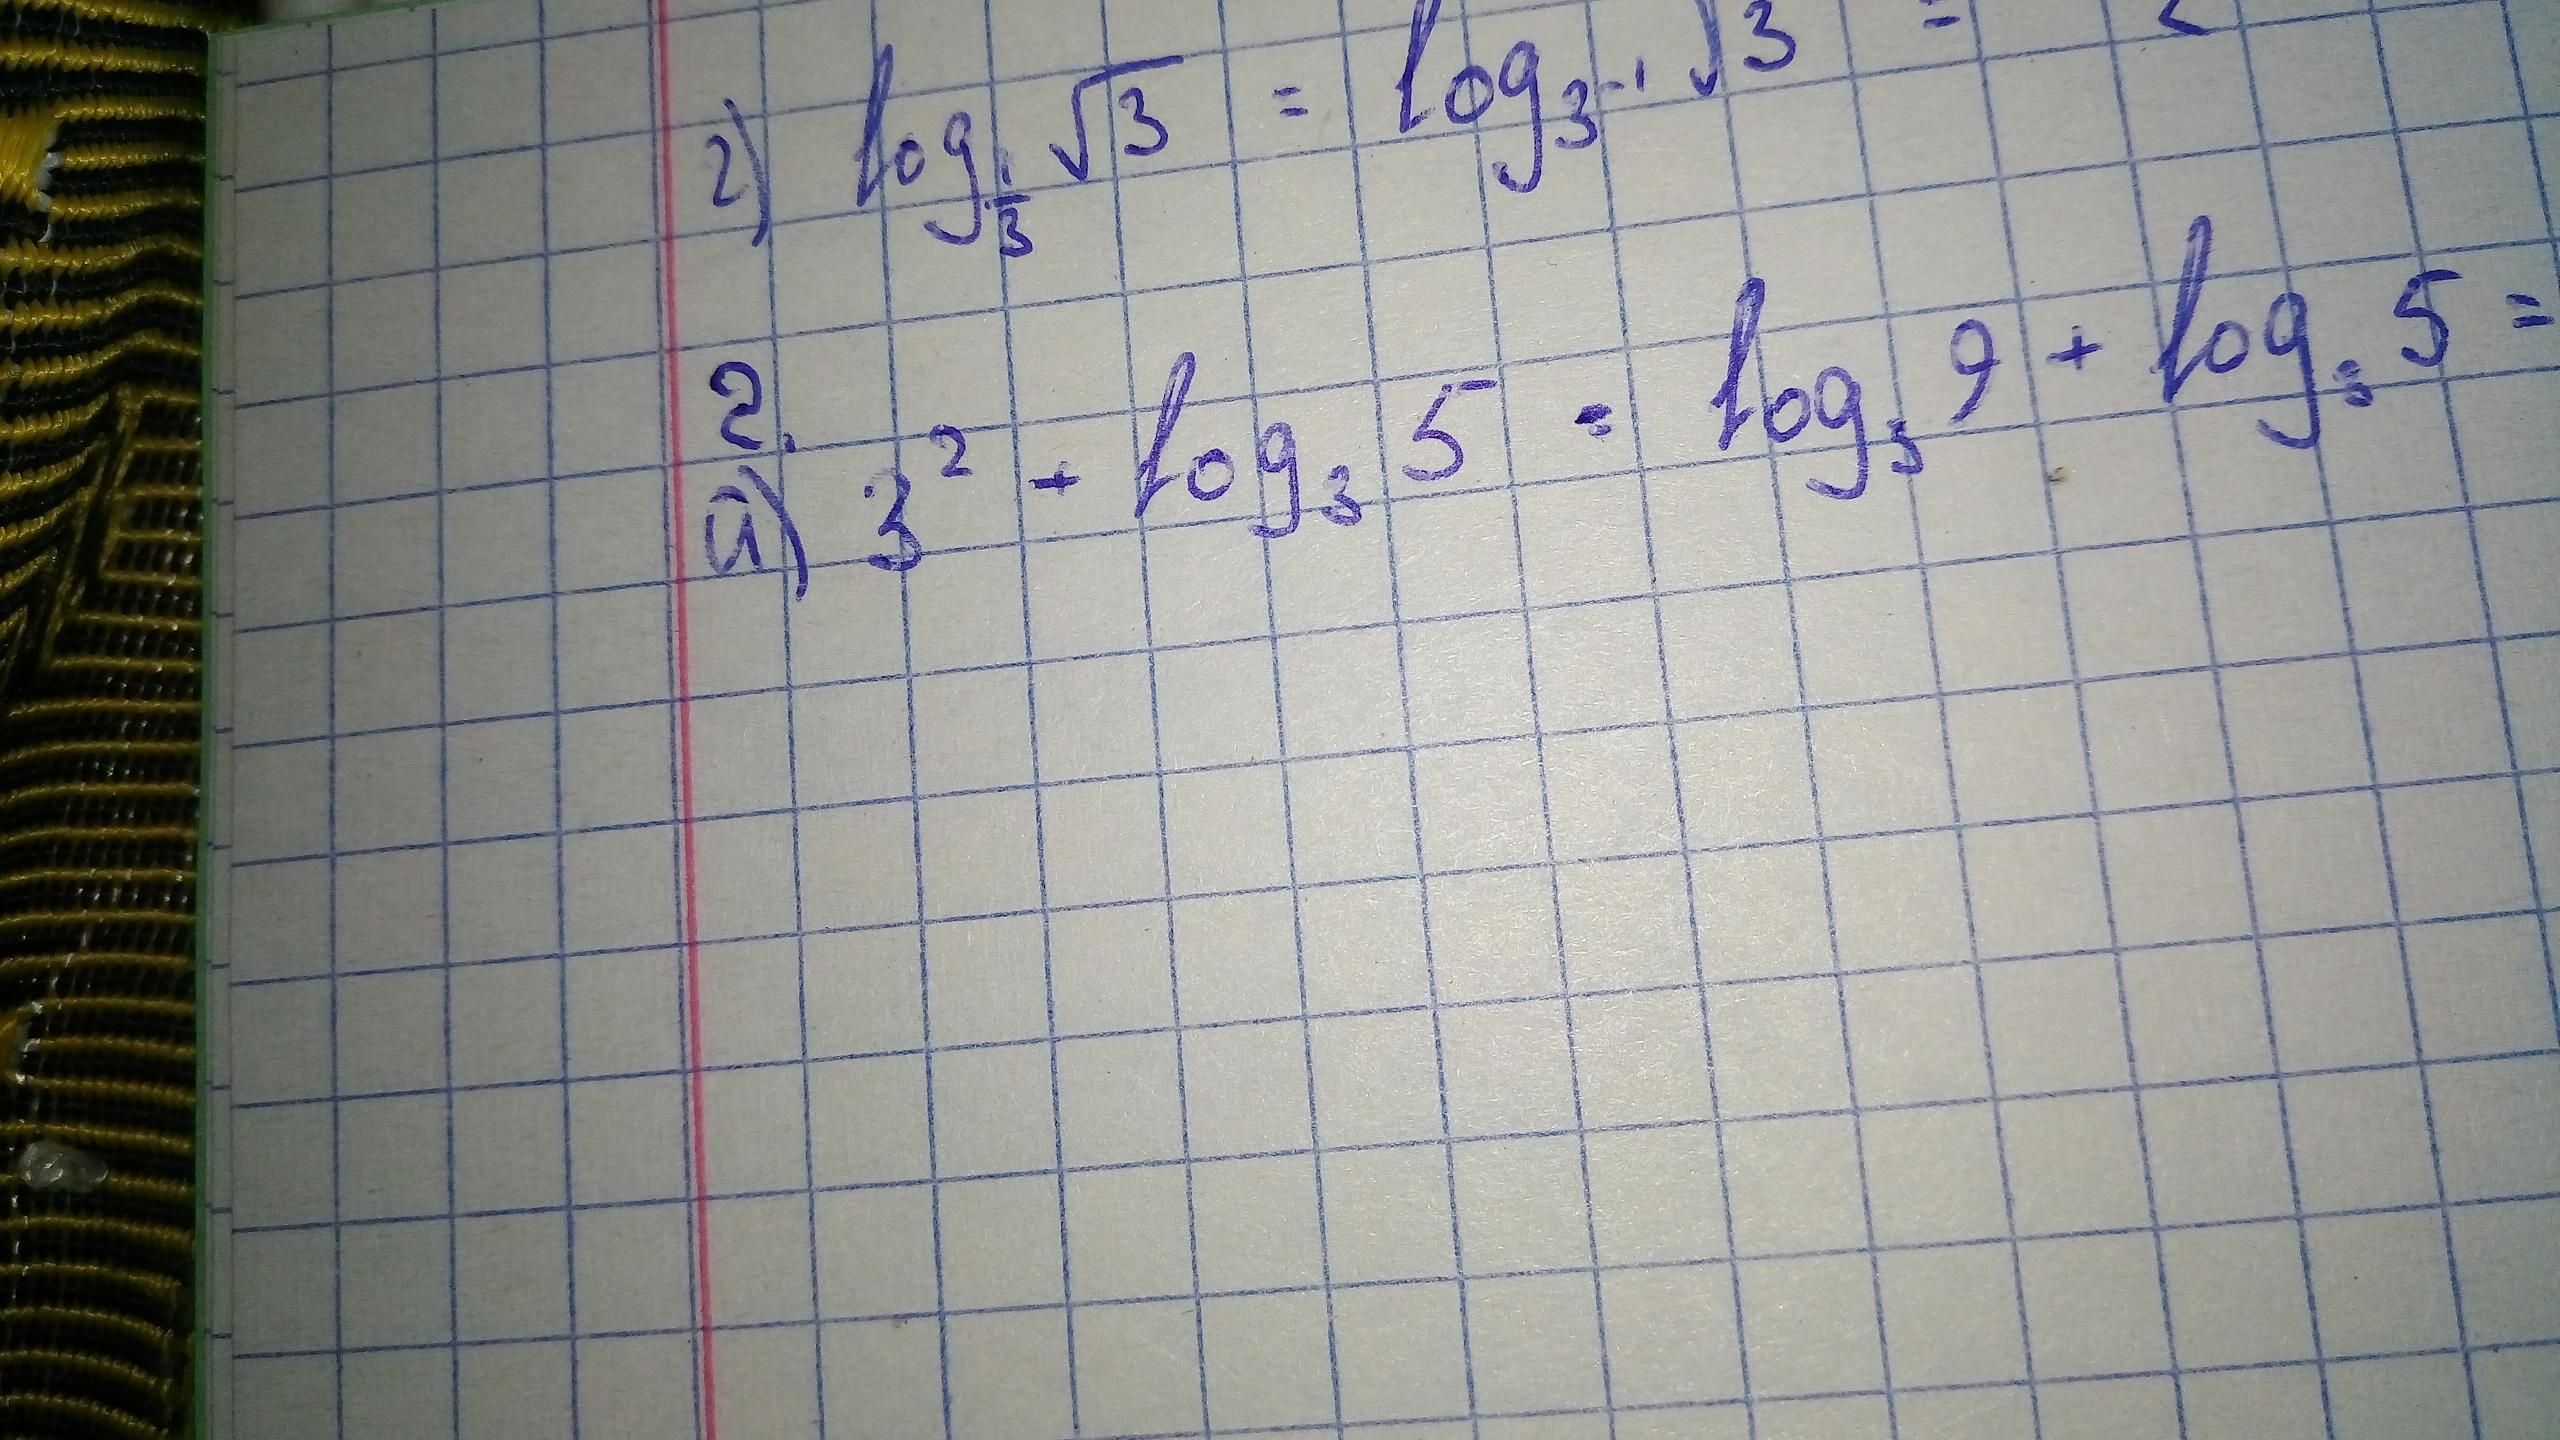 2) log_{1/3} √3 = log_{3^{-1}} √3 =
2.
а) 3² + log₃ 5 = log₃ 9 + log₃ 5 =